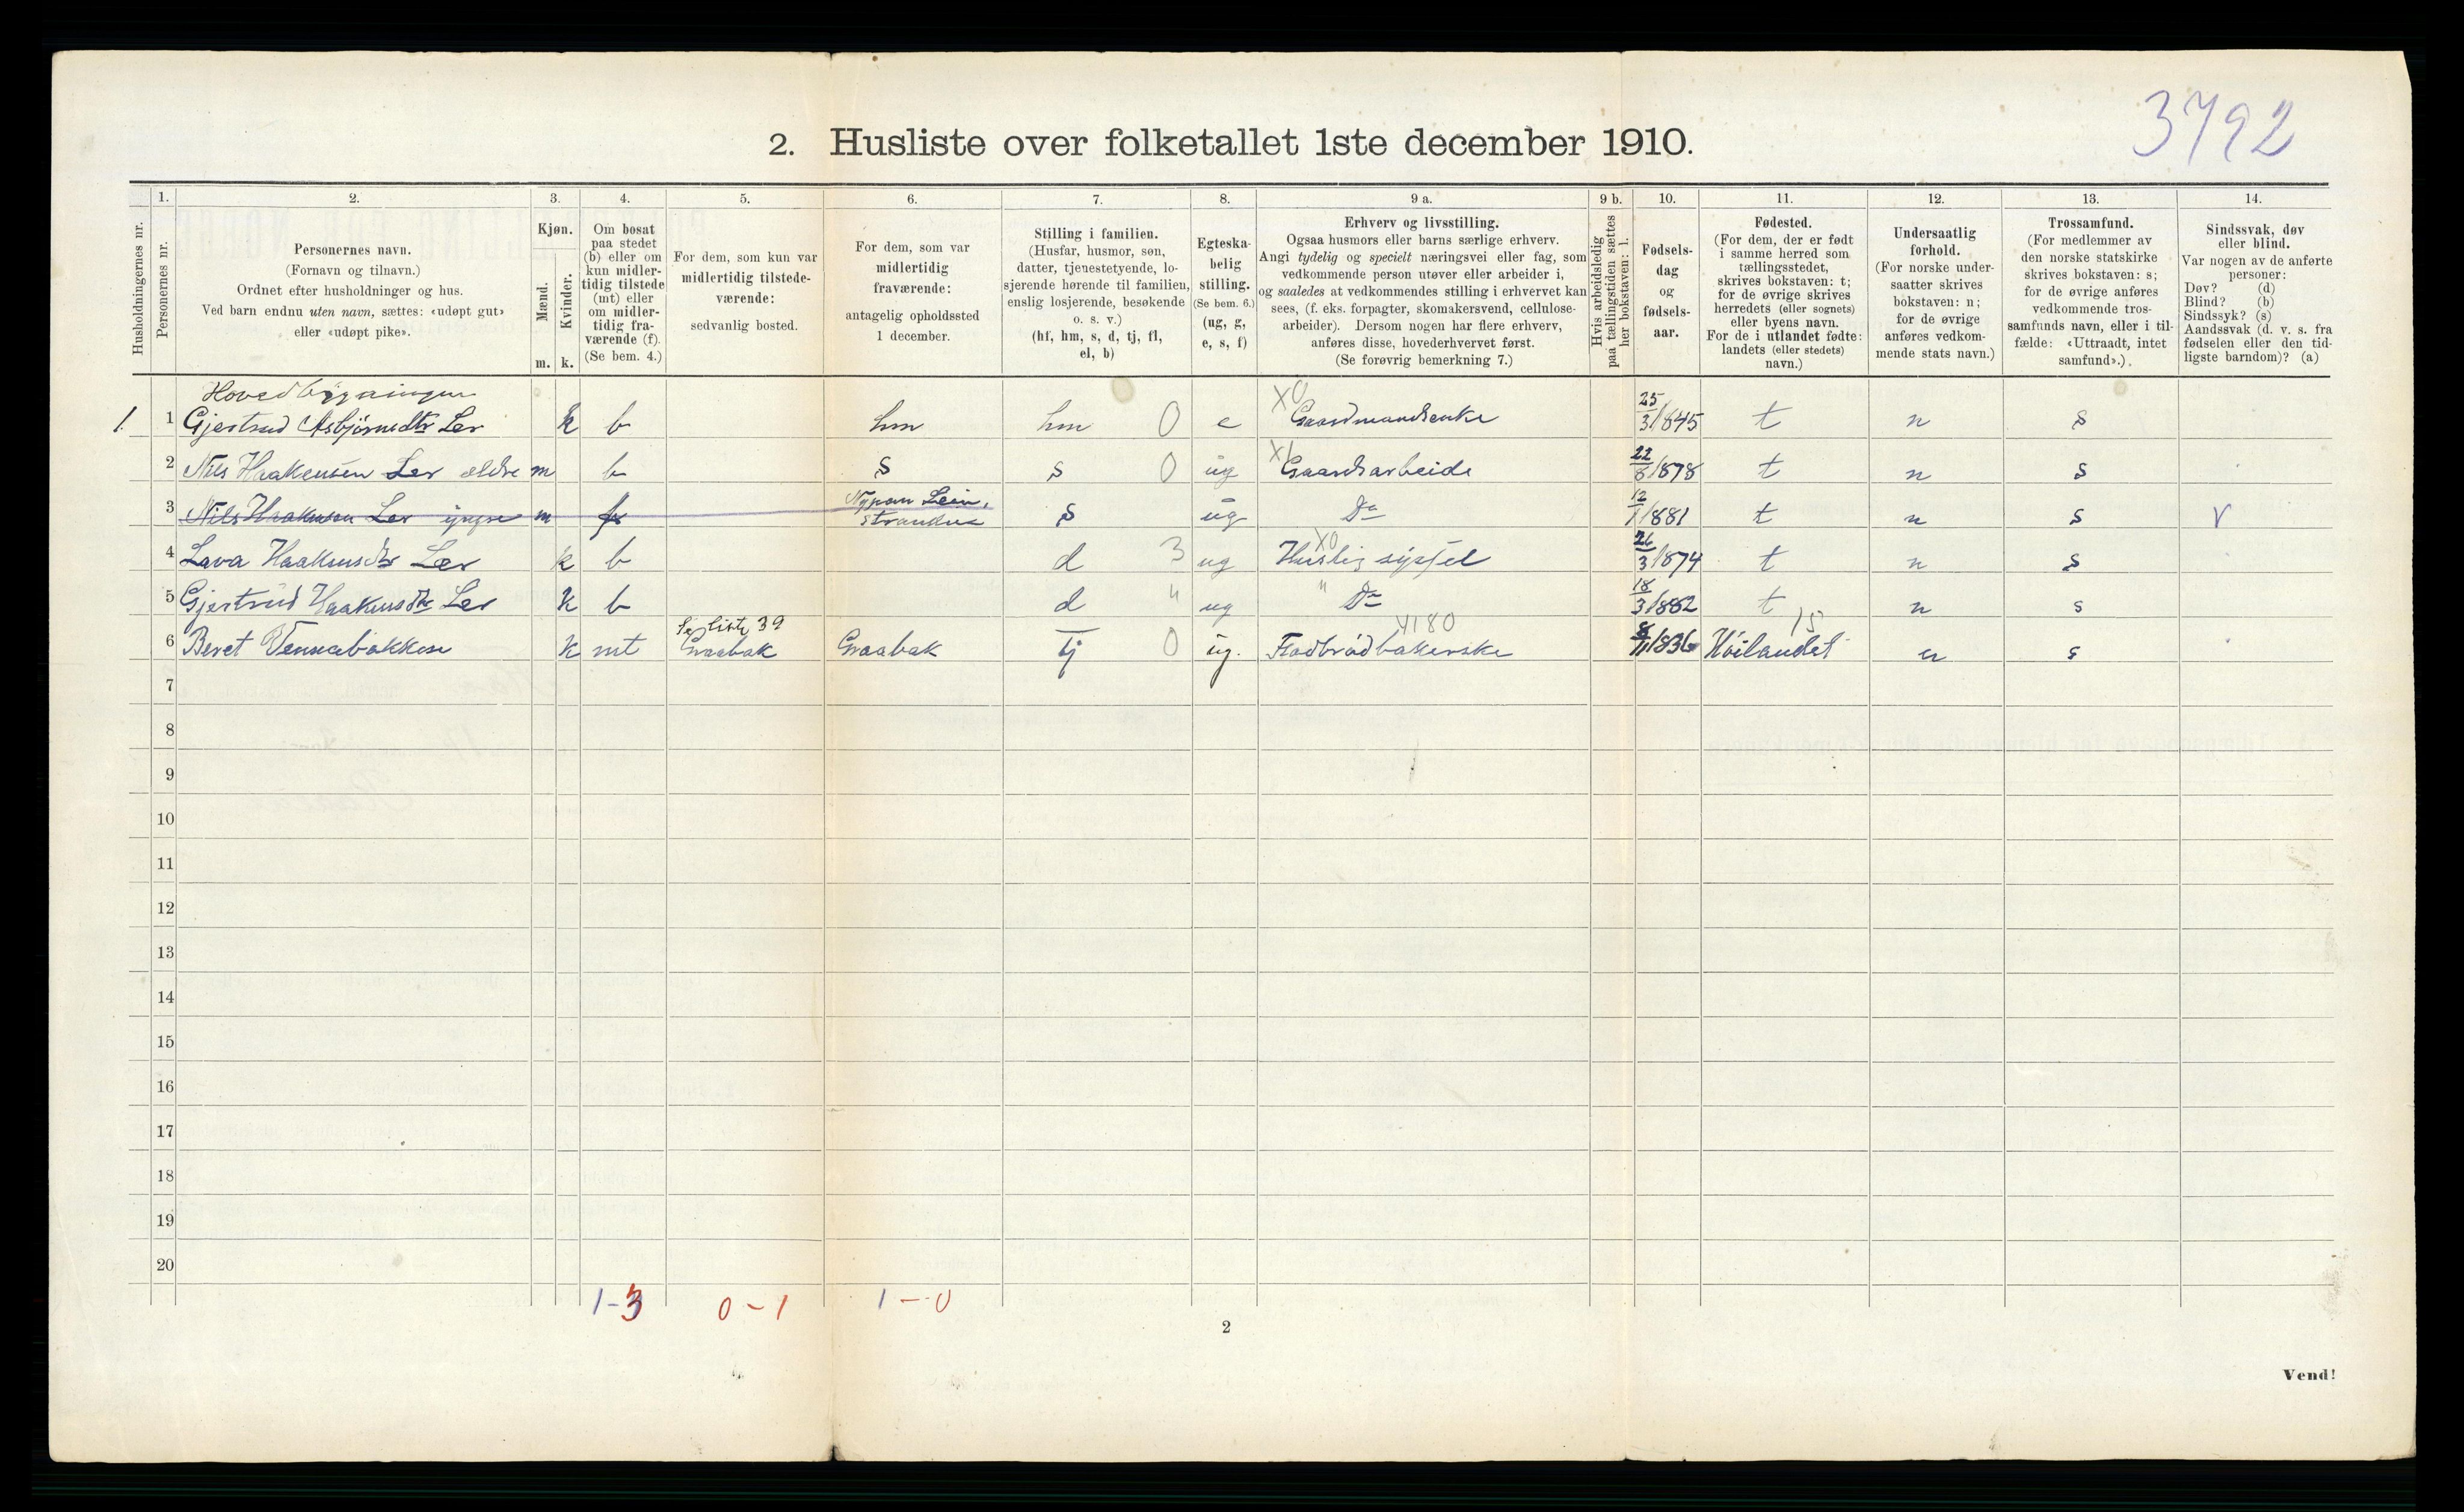 3792
2. Husliste over folketallet 1ste december 1910.
Husholdningernes nr.
1.
Personernes nr.
2.
Personernes navn.
(Fornavn og tilnavn.)
Ordnet efter husholdninger og hus.
Ved barn endnu uten navn, sættes: «udøpt gut»
eller «udøpt pike».
3.
Kjøn.
Mænd.
Kvinder.
m. k.
4.
Om bosat
paa stedet
(b) eller om
kun midler-
tidig tilstede
(mt) eller
om midler-
tidig fra-
værende (f).
(Se bem. 4.)
5.
For dem, som kun var
midlertidig tilstede-
værende:
sedvanlig bosted.
6.
For dem, som var
midlertidig
fraværende:
antagelig opholdssted
1 december.
7.
Stilling i familien.
(Husfar, husmor, søn,
datter, tjenestetyende, lo-
sjerende hørende til familien,
enslig losjerende, besøkende
o. s. v.)
(hf, hm, s, d, tj, fl,
el, b)
8.
Egteska-
belig
stilling.
(Se bem. 6.)
(ug, g,
e, s, f)
9 a.
Erhverv og livsstilling.
Ogsaa husmors eller barns særlige erhverv.
Angi tydelig og specielt næringsvei eller fag, som
vedkommende person utøver eller arbeider i,
og saaledes at vedkommendes stilling i erhvervet kan
sees, (f. eks. forpagter, skomakersvend, cellulose-
arbeider). Dersom nogen har flere erhverv,
anføres disse, hovederhvervet først.
(Se forøvrig bemerkning 7.)
9 b.
Hvis arbeidsledig
paa tællingstiden sættes
her bokstaven: l.
10.
Fødsels-
dag
og
fødsels-
aar.
11.
Fødested.
(For dem, der er født
i samme herred som
tællingsstedet,
skrives bokstaven: t;
for de øvrige skrives
herredets (eller sognets)
eller byens navn.
For de i utlandet fødte:
landets (eller stedets)
navn.)
12.
Undersaatlig
forhold.
(For norske under-
saatter skrives
bokstaven: n;
for de øvrige
anføres vedkom-
mende stats navn.)
13.
Trossamfund.
(For medlemmer av
den norske statskirke
skrives bokstaven: s;
for de øvrige anføres
vedkommende tros-
samfunds navn, eller i til-
fælde: «Uttraadt, intet
samfund».)
14.
Sindssvak, døv
eller blind.
Var nogen av de anførte
personer:
Døv? (d)
Blind? (b)
Sindssyk? (s)
Aandssvak (d. v. s. fra
fødselen eller den tid-
ligste barndom)? (a)
Hovedbygningen
1. 1 Gjertrud Asbjørnsdtr Ler k b hm hm 0 e X0 Gaardmandsenke 25/3 1845 t n s
2 Nils Haakensen Ler ældre m b s s 0 ug Gaardsarbeide 22/8 1878 t n s
3 Nils Haakensen Ler yngre m f Nypan Lein-
stranden s ug Do 12/1 1881 t n s V
4 Lava Haakensdtr Ler k b d 3 ug X0 Huslig syssel 26/3 1874 t n s
5 Gjertrud Haakensdtr Ler k b d 4 ug " Do 18/3 1882 t n s
6 Beret Vennabakken k mt Se liste 39
Graabak Graabak tj 0 ug. Fladbrødbakerske 1836 Höilandet 15 n s
7
8
9
10
11
12
13
14
15
16
17
18
19
20
1-3 0-1 1-0
2
Vend!